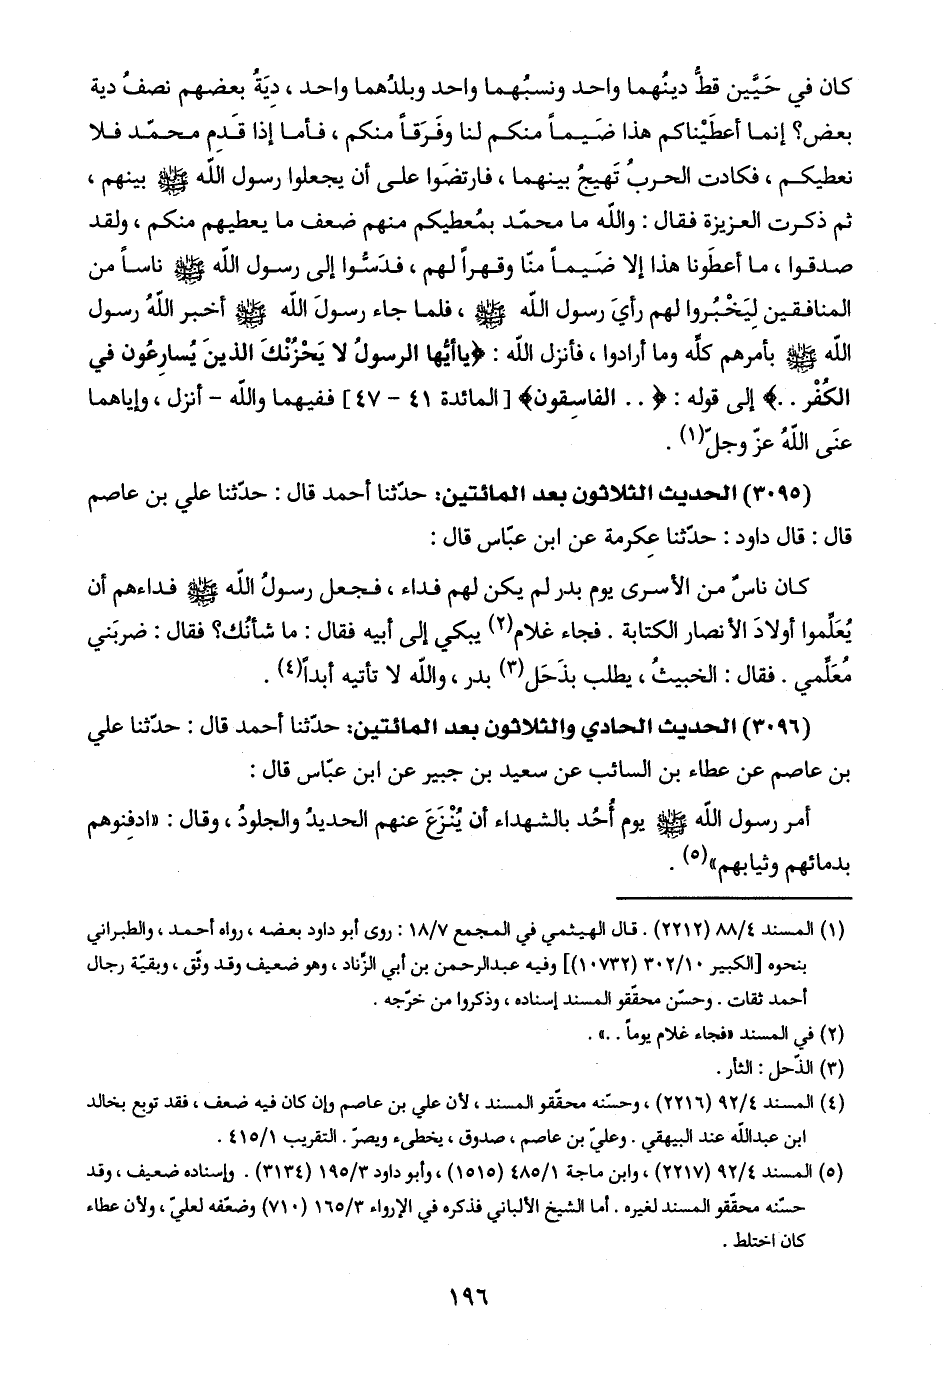 كان في حَيَّين قطُّ دينُهما واحد ونسبُهما واحد وبلدُهما واحد ، دِيَةُ بعضهم نصفُ دية
بعض؟ إنما أعطَيْناكم هذا ضَيماً منكم لنا وفَرَقاً منكم ، فأما إذا قَدِم محمّد فلا
نعطيكم ، فكادت الحربُ تَهيجُ بينهما ، فارتضَوا على أن يجعلوا رسول الله ﷺ بينهم ،
ثم ذكرت العزيزة فقال : والله ما محمّد بمُعطيكم منهم ضعف ما يعطيهم منكم ، ولقد
صدقوا ، ما أعطَونا هذا إلا ضَيماً منّا وقهراً لهم ، فدَسُّوا إلى رسول الله ﷺ ناساً من
المنافقين ليَخْبُروا لهم رأيَ رسول الله ﷺ ، فلما جاء رسولَ الله ﷺ أخبر اللهُ رسول
الله ﷺ بأمرهم كلِّه وما أرادوا ، فأنزل الله : ﴿ياأيُّها الرسولُ لا يَحْزُنْكَ الذينَ يُسارِعُون في
الكُفْر . .﴾ إلى قوله : ﴿ . . الفاسِقون﴾ [ المائدة ٤١ – ٤٧ ] ففيهما والله – أنزل ، وإياهما
عنَى اللهُ عزّ وجلّ(١) .
(٣٠٩٥) الحديث الثلاثون بعد المائتين: حدّثنا أحمد قال : حدّثنا علي بن عاصم
قال : قال داود : حدّثنا عكرمة عن ابن عبّاس قال :
كان ناسٌ من الأسرى يوم بدر لم يكن لهم فداء ، فجعل رسولُ الله ﷺ فداءهم أن
يُعَلِّموا أولادَ الأنصار الكتابة . فجاء غلام(٢) يبكي إلى أبيه فقال : ما شأنُك؟ فقال : ضربَني
مُعَلِّمي . فقال : الخبيثُ ، يطلب بذَحَل(٣) بدر ، والله لا تأتيه أبداً(٤) .
(٣٠٩٦) الحديث الحادي والثلاثون بعد المائتين: حدّثنا أحمد قال : حدّثنا علي
بن عاصم عن عطاء بن السائب عن سعيد بن جبير عن ابن عبّاس قال :
أمر رسول الله ﷺ يوم أُحُد بالشهداء أن يُنْزَعَ عنهم الحديدُ والجلودُ ، وقال : «ادفِنوهم
بدمائهم وثيابهم»(٥) .
(١) المسند ٨٨/٤ (٢٢١٢) . قال الهيثمي في المجمع ١٨/٧ : روى أبو داود بعضه ، رواه أحمد ، والطبراني
بنحوه [الكبير ٣٠٢/١٠ (١٠٧٣٢)] وفيه عبدالرحمن بن أبي الزّناد ، وهو ضعيف وقد وثّق ، وبقيّة رجال
أحمد ثقات . وحسّن محقّقو المسند إسناده ، وذكروا من خرّجه .
(٢) في المسند «فجاء غلام يوماً . .» .
(٣) الذّحل : الثأر .
(٤) المسند ٩٢/٤ (٢٢١٦) ، وحسّنه محقّقو المسند ، لأن علي بن عاصم وإن كان فيه ضعف ، فقد توبع بخالد
ابن عبدالله عند البيهقي . وعليّ بن عاصم ، صدوق ، يخطىء ويصرّ . التقريب ٤١٥/١ .
(٥) المسند ٩٢/٤ (٢٢١٧) ، وابن ماجة ٤٨٥/١ (١٥١٥) ، وأبو داود ١٩٥/٣ (٣١٣٤) . وإسناده ضعيف ، وقد
حسّنه محقّقو المسند لغيره . أما الشيخ الألباني فذكره في الإرواء ١٦٥/٣ (٧١٠) وضعّفه لعليّ ، ولأن عطاء
كان اختلط .
١٩٦